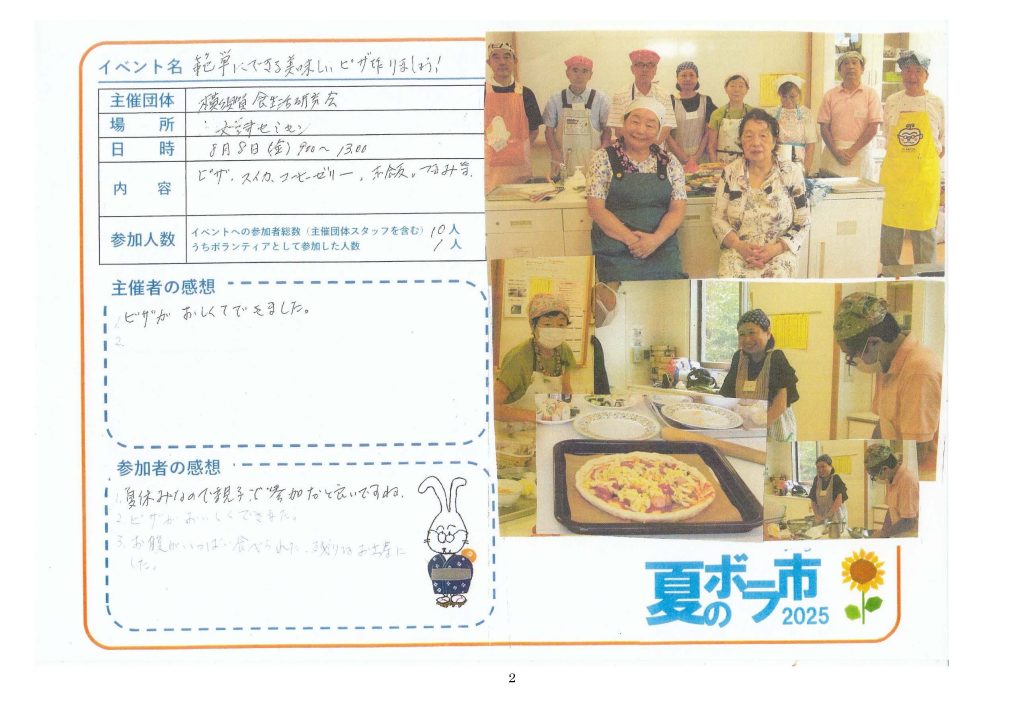 イベント名 簡単にできる美味しいピザ作りましょう!
主催団体 横須賀食生活研究会
場 所
日 時 8月8日(金) 9:00〜13:00
内 容 ピザ、スイカ、コーヒーゼリー、赤飯。つまみ等、
参加人数 イベントへの参加者総数(主催団体スタッフを含む) 10人
うちボランティアとして参加した人数 1人
主催者の感想
1. ピザがおいしくできました。
2.
参加者の感想
1. 夏休みなので親子で参加だと良いですね、
2. ピザがおいしくできた。
3. お腹がいっぱい食べられた、残りはお土産に
した。
夏のボラ市
2025
2